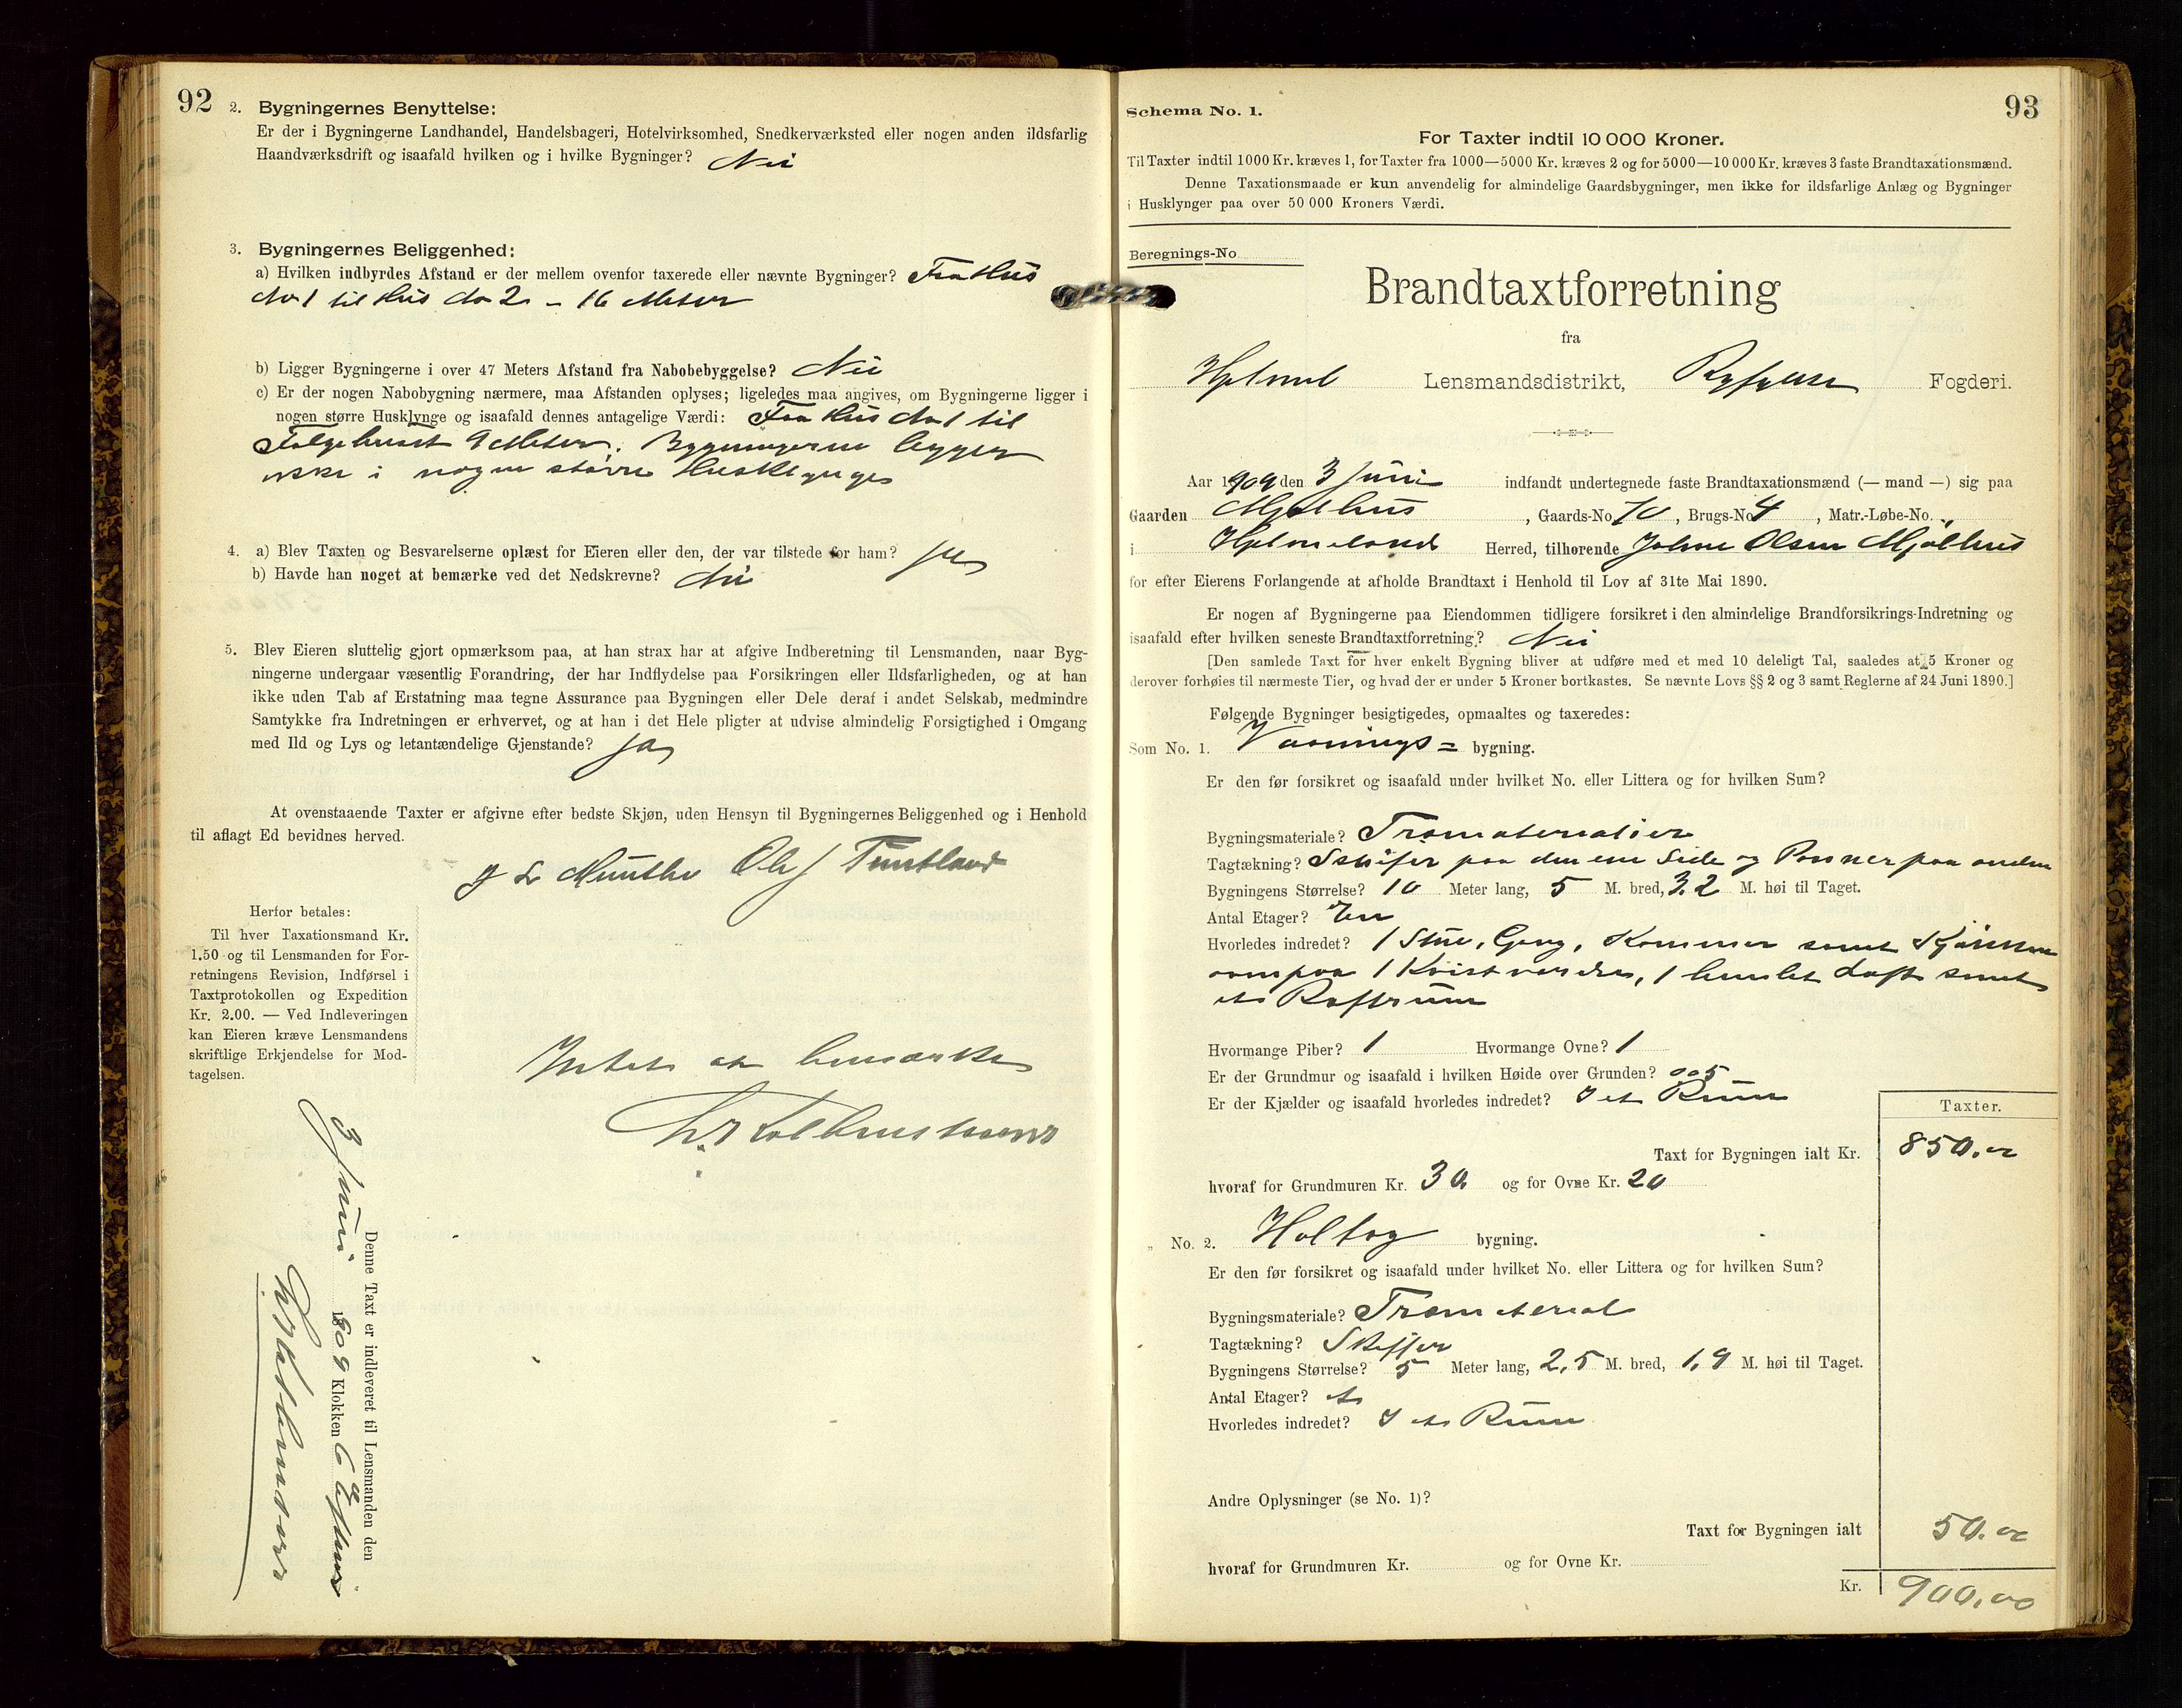 92
2. Bygningernes Benyttelse:
Er der i Bygningerne Landhandel, Handelsbageri, Hotelvirksomhed, Snedkerværksted eller nogen anden ildsfarlig
Haandværksdrift og isaafald hvilken og i hvilke Bygninger? Nei
3. Bygningernes Beliggenhed:
a) Hvilken indbyrdes Afstand er der mellem ovenfor taxerede eller nævnte Bygninger? Fra Hus
No 1 til Hus No 2 - 16 Meter
b) Ligger Bygningerne i over 47 Meters Afstand fra Nabobebyggelse? Nei
c) Er der nogen Nabobygning nærmere, maa Afstanden oplyses; ligeledes maa angives, om Bygningerne ligger i
nogen større Husklynge og isaafald dennes antagelige Værdi: Fra Hus No 1 til
Folgehuset 9 Meter. Bygningerne ligger
ikke i nogen større Husklynge
4. a) Blev Taxten og Besvarelserne oplæst for Eieren eller den, der var tilstede for ham? Ja
b) Havde han noget at bemærke ved det Nedskrevne? Nei
5. Blev Eieren sluttelig gjort opmærksom paa, at han strax har at afgive Indberetning til Lensmanden, naar Byg-
ningerne undergaar væsentlig Forandring, der har Indflydelse paa Forsikringen eller Ildsfarligheden, og at han
ikke uden Tab af Erstatning maa tegne Assurance paa Bygningen eller Dele deraf i andet Selskab, medmindre
Samtykke fra Indretningen er erhvervet, og at han i det Hele pligter at udvise almindelig Forsigtighed i Omgang
med Ild og Lys og letantændelige Gjenstande? Ja
At ovenstaaende Taxter er afgivne efter bedste Skjøn, uden Hensyn til Bygningernes Beliggenhed og i Henhold
til aflagt Ed bevidnes herved.
Munthe Ole J Tuntland
Herfor betales:
Til hver Taxationsmand Kr.
1.50 og til Lensmanden for For-
retningens Revision, Indførsel i
Taxtprotokollen og Expedition
Kr. 2.00. — Ved Indleveringen
kan Eieren kræve Lensmandens
skriftlige Erkjendelse for Mod-
tagelsen.
Intet at bemærke
Denne Taxt er indleveret til Lensmanden den
3 Juni 1909 Klokken 6 Efterm
93
Schema No. 1.
For Taxter indtil 10 000 Kroner.
Til Taxter indtil 1000 Kr. kræves 1, for Taxter fra 1000—5000 Kr. kræves 2 og for 5000—10 000 Kr. kræves 3 faste Brandtaxationsmænd.
Denne Taxationsmaade er kun anvendelig for almindelige Gaardsbygninger, men ikke for ildsfarlige Anlæg og Bygninger
i Husklynger paa over 50 000 Kroners Værdi.
Beregnings-No
Brandtaxtforretning
fra
Hjelmel Lensmandsdistrikt, Ryfylke Fogderi.
Aar 1909 den 3 Juni indfandt undertegnede faste Brandtaxationsmænd (— mand —) sig paa
Gaarden Mjølhus, Gaards-No 70, Brugs-No 4, Matr.-Løbe-No. „
i Hjelmeland Herred, tilhørende Johne Olsen Mjølhus
for efter Eierens Forlangende at afholde Brandtaxt i Henhold til Lov af 31te Mai 1890.
Er nogen af Bygningerne paa Eiendommen tidligere forsikret i den almindelige Brandforsikrings-Indretning og
isaafald efter hvilken seneste Brandtaxtforretning? Nei
[Den samlede Taxt for hver enkelt Bygning bliver at udføre med et med 10 deleligt Tal, saaledes at 5 Kroner og
derover forhøies til nærmeste Tier, og hvad der er under 5 Kroner bortkastes. Se nævnte Lovs §§ 2 og 3 samt Reglerne af 24 Juni 1890.]
Følgende Bygninger besigtigedes, opmaaltes og taxeredes:
Som No. 1. Vaanings= bygning.
Er den før forsikret og isaafald under hvilket No. eller Littera og for hvilken Sum?
Bygningsmateriale? Træmaterialier
Tagtækning? Skifer paa den ene Side og Panner paa anden
Bygningens Størrelse? 10 Meter lang, 5 M. bred, 3.2 M. høi til Taget.
Antal Etager? En
Hvorledes indredet? 1 Stue, Gang, Kammer samt Kjøkken
ovenpaa 1 Kvistværelse, 1 lemlet Loft samt
et Loftsrum
Hvormange Piber? 1 Hvormange Ovne? 1
Er der Grundmur og isaafald i hvilken Høide over Grunden? 0.5
Er der Kjælder og isaafald hvorledes indredet? I et Rum
Taxter.
Taxt for Bygningen ialt Kr. 850.00
hvoraf for Grundmuren Kr. 30. og for Ovne Kr. 20
„ No. 2. bygning.
Er den før forsikret og isaafald under hvilket No. eller Littera og for hvilken Sum?
Bygningsmateriale? Træmaterial
Tagtækning? Skiffer
Bygningens Størrelse? 5 Meter lang, 2,5 M. bred, 1,9 M. høi til Taget.
Antal Etager? et
Hvorledes indredet? I et Rum
Andre Oplysninger (se No. 1)?
Taxt for Bygningen ialt 50.00
hvoraf for Grundmuren Kr. og for Ovne Kr.
Kr. 900,00